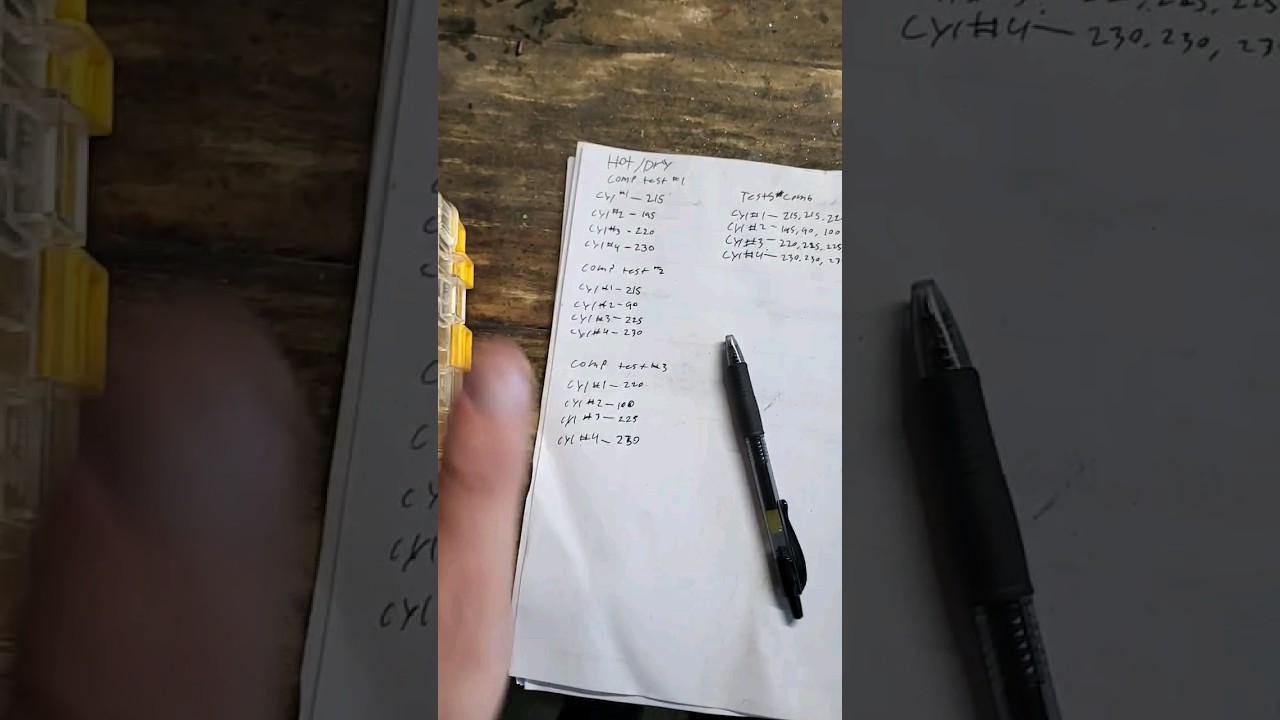 HOT/DRY
COMP test #1
CYl #1 – 215
CYl #2 – 195
CYl #3 – 220
CYl #4 – 230
COMP test #2
CYl #1 – 215
CYl #2 – 90
CYl #3 – 225
CYl #4 – 230
COMP test #3
CYl #1 – 220
CYl #2 – 100
CYl #3 – 225
CYl #4 – 230
CYl #1 – 215, 215, 22
CYl #2 – 195, 90, 100
CYl #3 – 220, 225, 225
CYl #4 – 230, 230, 23